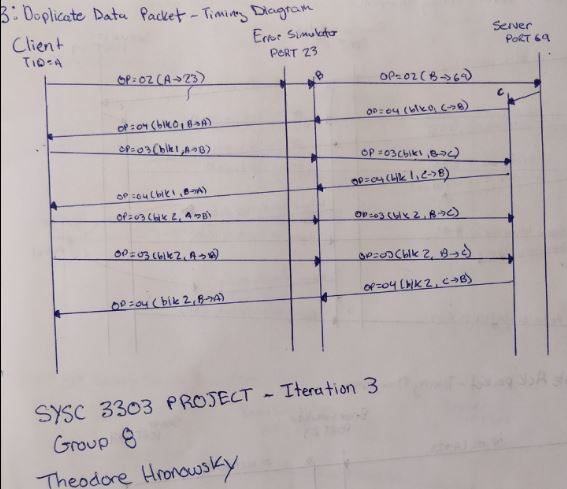 3: Duplicate Data Packet - Timing Diagram
Client
TID=A
Error Simulator
PORT 23
Server
PORT 69
OP=02 (A→23)
B
OP=02 (B→69)
C
OP=04 (blk0, C→B)
OP=04 (blk0, B→A)
OP=03 (blk1, A→B)
OP=03 (blk1, B→C)
OP=04 (blk 1, C→B)
OP=04 (blk1, B→A)
OP=03 (blk 2, A→B)
OP=03 (blk 2, B→C)
OP=03 (blk 2, A→B)
OP=03 (blk 2, B→C)
OP=04 (blk 2, C→B)
OP=04 (blk 2, B→A)
SYSC 3303 PROJECT - Iteration 3
Group 8
Theodore Hronowsky